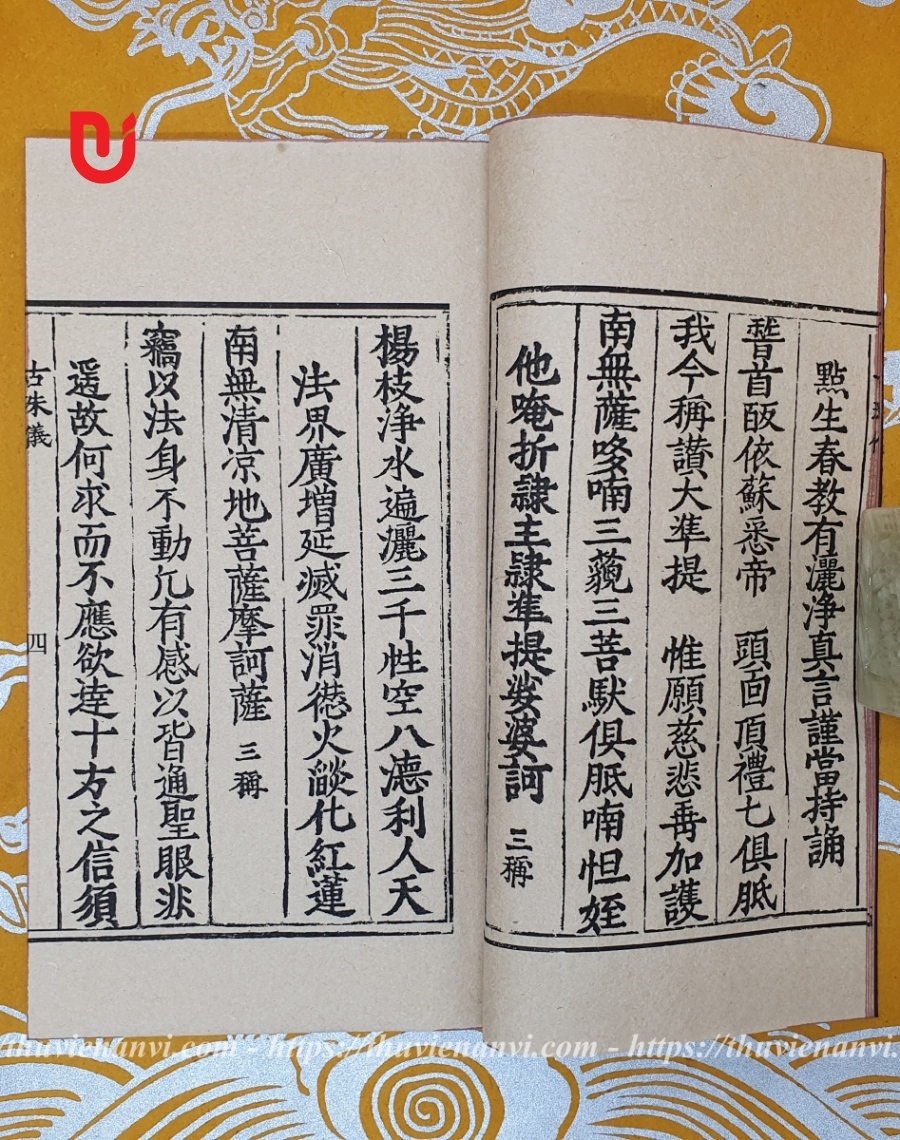 點生春教有灑淨真言謹當持誦
稽首皈依蘇悉帝　頭面頂禮七俱胝
我今稱讚大準提　惟願慈悲再加護
南無薩哆喃三藐三菩馱俱胝喃怛姪
他唵折隷主隷準提娑婆訶　三稱
楊枝淨水遍灑三千性空八德利人天
法界廣增延滅罪消愆火燄化紅蓮
南無清凉地菩薩摩訶薩　三稱
竊以法身不動凢有感以皆通聖眼非
遥故何求而不應欲達十方之信須
四
https://thuvienanvi.com - https://thuvienanvi.com - https://thuvienanvi.